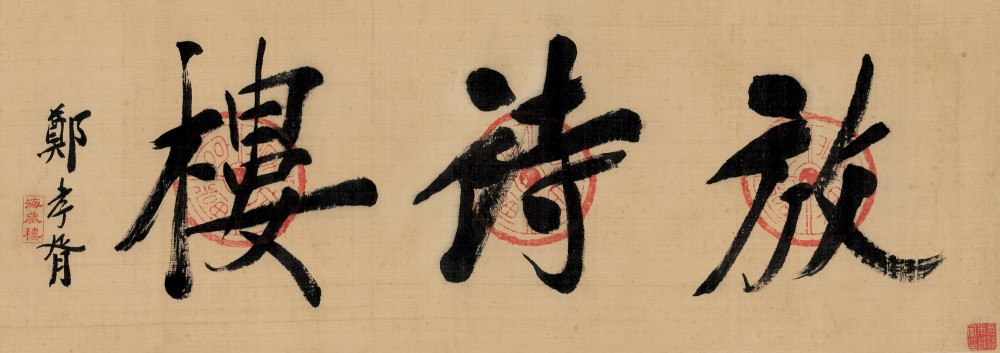 放詩樓
鄭孝胥
海藏樓